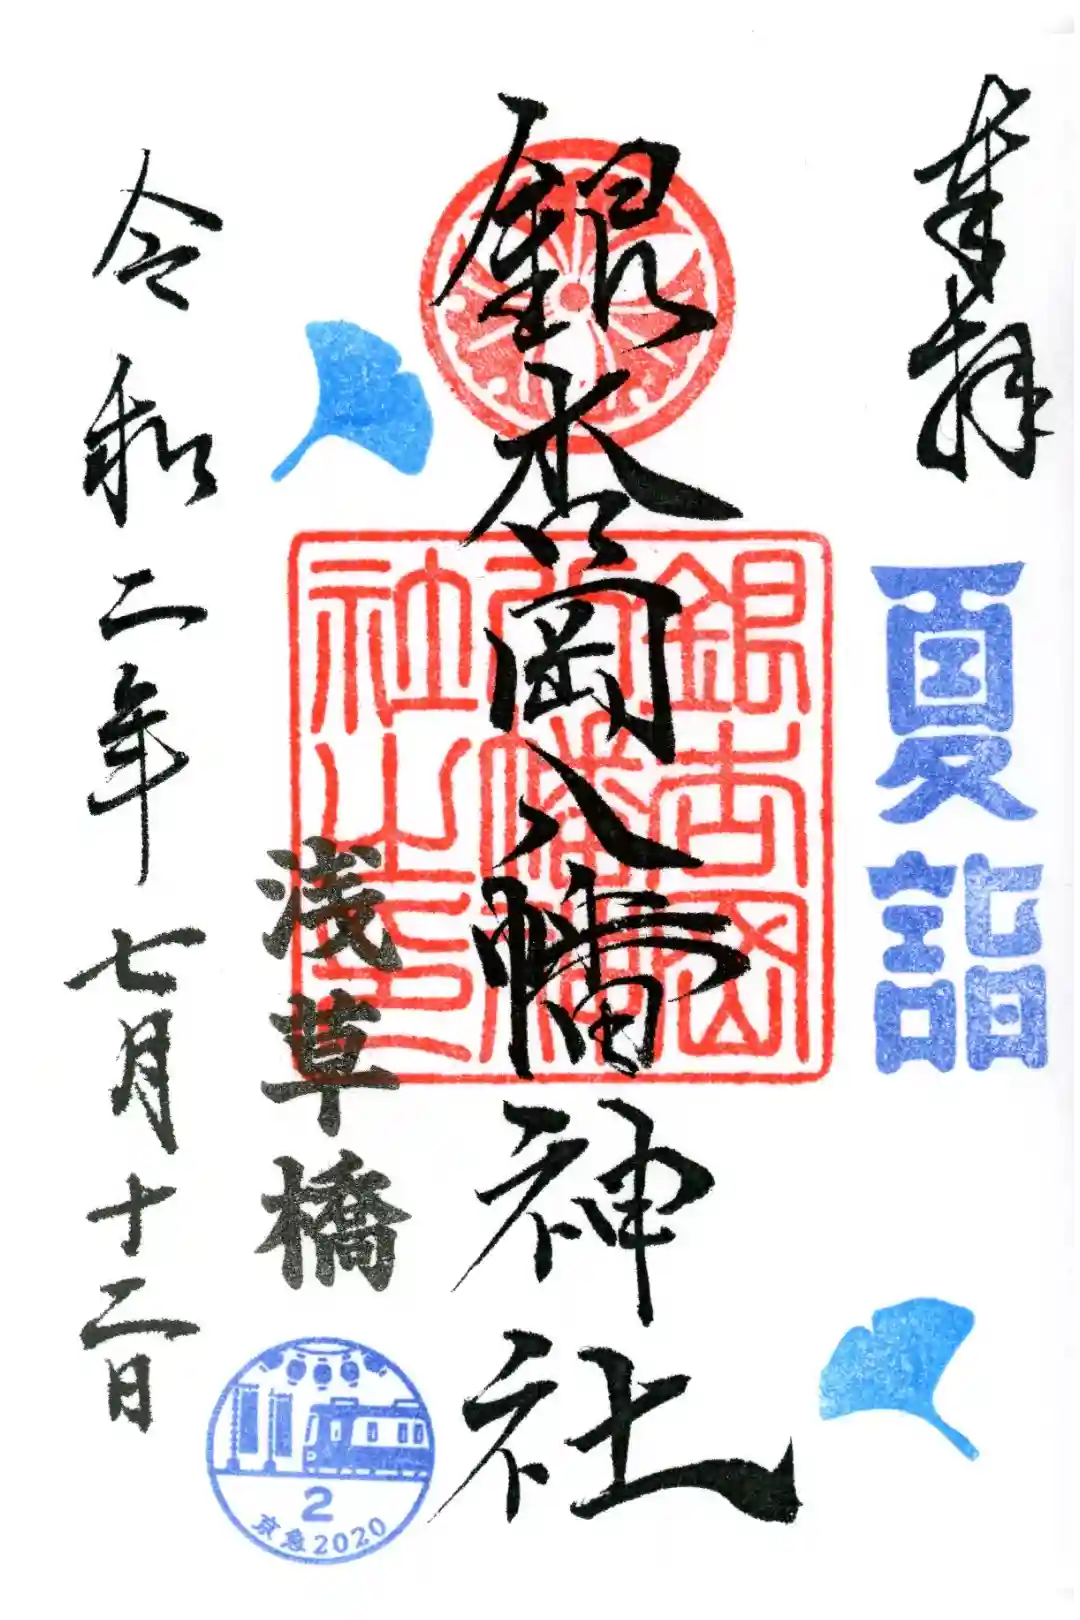 奉拝
夏詣
銀杏岡八幡神社
銀杏岡八幡神社之印
浅草橋
令和二年七月十二日
2
京急2020